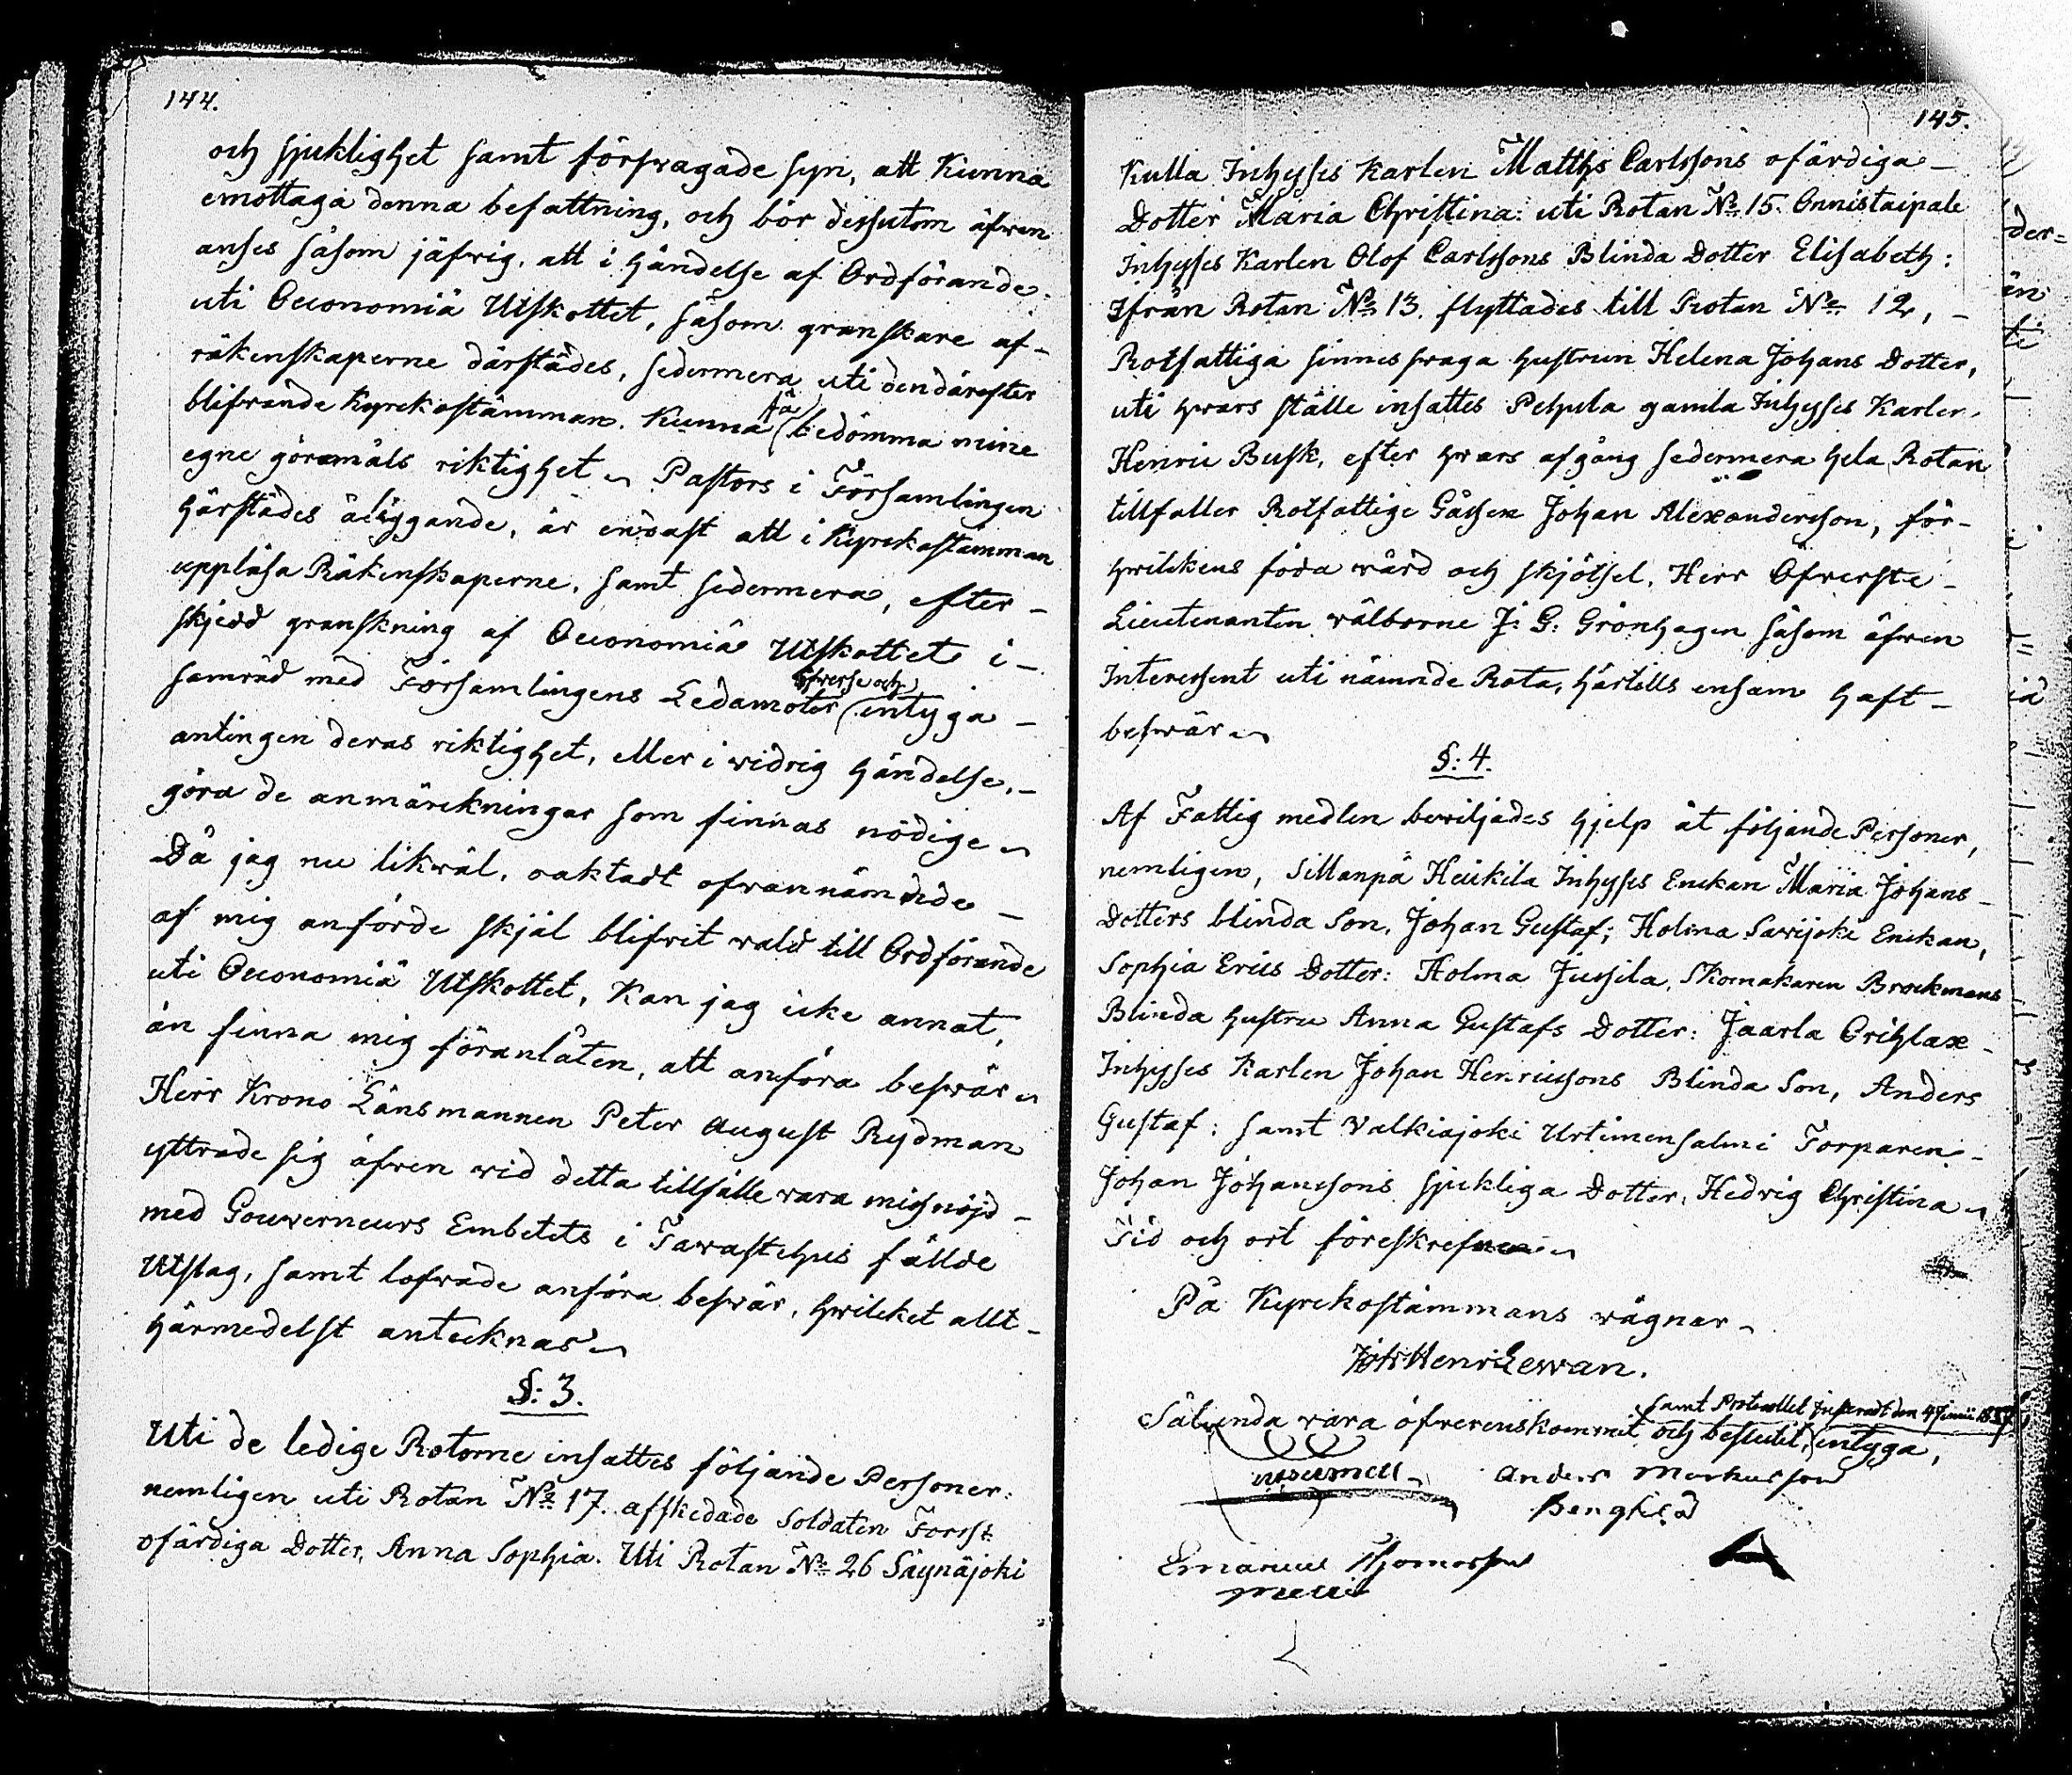 144.
och sjuklighet samt försvagade syn, att Kunna
emottaga denna befattning, och bör dessutom äfven
anses såsom jäfvig, att i händelse af Ordförande
uti Oeconomiä Utskottet, såsom granskare af
räkenskaperne därstädes, sedermera uti den därefter
blifvande Kyrckostämman. Kunna få bedömma mine
egne göramåls riktighet. Pastors i Församlingen
härstädes åliggande, är endast att i Kyrckostämman
uppläsa Räkenskaperne, samt sedermera, efter
skjedd granskning af Oeconomiä Utskottet i
samråd med Församlingens Ledamöter öfverse och intyga
antingen deras riktighet, eller i vidrig händelse,
göra de anmärckningar som finnas nödige
Då jag nu likväl, oaktadt ofvannämnde
af mig anförde skjäl blifvit vald till Ordförande
uti Oeconomiä Utskottet, Kan jag icke annat,
än finna mig föranlåten, att anföra besvär
Herr Krono Länsmannen Peter August Rydman
yttrade sig äfven vid detta tillfälle vara missnöjd
med Gouverneurs Embetets i Tavastehus fällde
Utslag, samt lofvade anföra besvär, hvilcket allt
härmedelst antecknas
§: 3.
Uti de ledige Rotorne insattes följande Personer:
nemligen uti Rotan No 17. afskedade Soldaten Forss:
ofärdiga Dotter, Anna Sophia. Uti Rotan No 26 Säynäjoki
145.
Kulla Inhysses Karlen Matths Carlssons ofärdiga
Dotter Maria Christina: uti Rotan No 15. Onnistaipale
Inhysses Karlen Olof Carlssons Blinda Dotter Elisabeth:
Ifrån Rotan No 13. flyttades till Rotan No 12,
Rotfattiga sinnessvaga hustrun Helena Johans Dotter,
uti hvars ställe insattes Pehula gamla Inhysses Karlen
Henric Busk, efter hvars afgång sedermera hela Rotan
tillfaller Rotfattige Gåssen Johan Alexandersson, för
hvilckens föda vård och skjötsel, Herr Öfverste
Lieutenanten välborne J: G: Grönhagen såsom äfven
Interessent uti nämnde Rota, härtills ensam haft
besvär
§: 4.
Af Fattig medlen beviljades hjelp åt följande Personer,
nemligen, Sillanpä Heickila Inhysses Enckan Maria Johans
Dotters blinda Son, Johan Gustaf; Holma Savijoki Enckan,
Sophia Erics Dotter: Holma Jussila, Skomakaren Brockmans
Blinda hustru Anna Gustafs Dotter: Jaarla Orihlax
Inhysses Karlen Johan Henricssons Blinda Son, Anders
Gustaf: samt Valkiajoki Urtimensalmi Torparen
Johan Johanssons sjukliga Dotter, Hedvig Christina
Tid och ort föreskrefne
På Kyrckostämmans vägnar
Joh: Henr: Levan.
Sålunda vara öfverenskommit och beslutit, samt Protocollet Justeradt den 4 Junii 1837, intyga,
Anders Markusson
Emanuel Thomasson